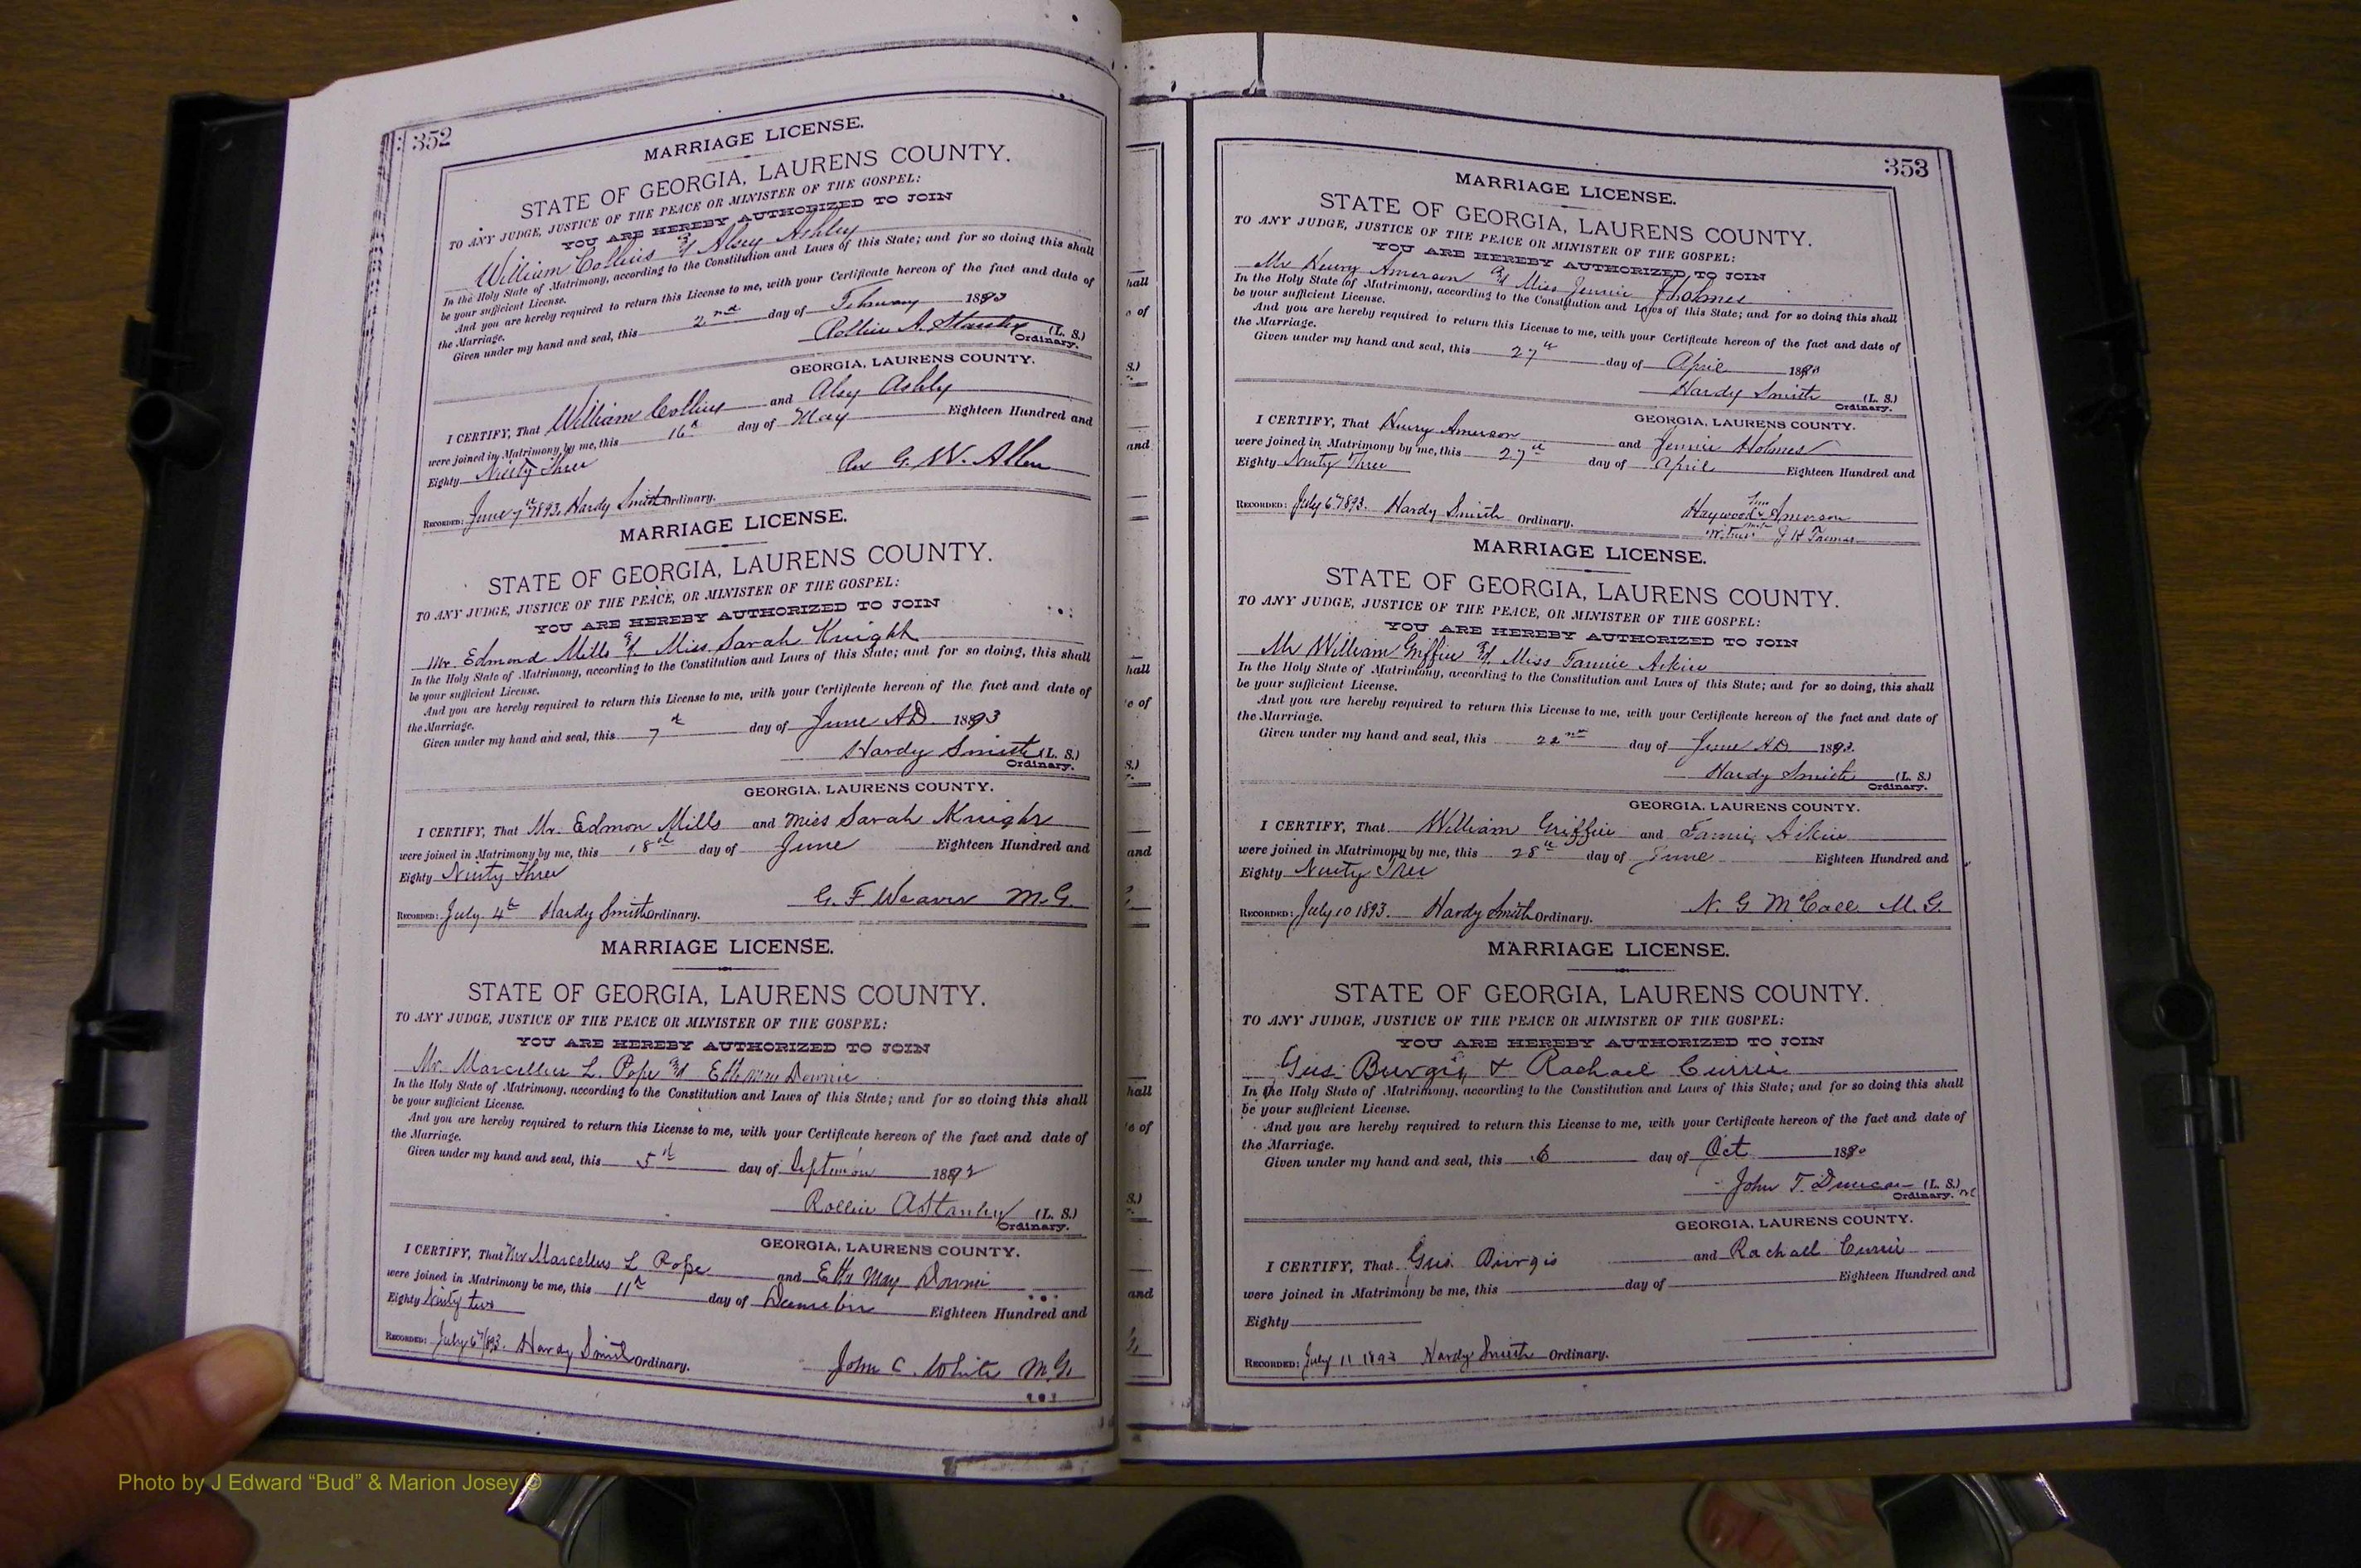 352
MARRIAGE LICENSE.
STATE OF GEORGIA, LAURENS COUNTY.
TO ANY JUDGE, JUSTICE OF THE PEACE OR MINISTER OF THE GOSPEL:
YOU ARE HEREBY AUTHORIZED TO JOIN
William Collins & Alsey Ashley
In the Holy State of Matrimony, according to the Constitution and Laws of this State; and for so doing this shall
be your sufficient License.
And you are hereby required to return this License to me, with your Certificate hereon of the fact and date of
the Marriage.
Given under my hand and seal, this 2nd day of February 1893
Rollin A. Stanley (L. S.)
Ordinary.
GEORGIA, LAURENS COUNTY.
I CERTIFY, That William Collins and Alsy Ashly
were joined in Matrimony by me, this 16th day of May Eighteen Hundred and
Eighty Ninety Three
Rev G. W. Allen
RECORDED: June 7th 1893. Hardy Smith Ordinary.
MARRIAGE LICENSE.
STATE OF GEORGIA, LAURENS COUNTY.
TO ANY JUDGE, JUSTICE OF THE PEACE, OR MINISTER OF THE GOSPEL:
YOU ARE HEREBY AUTHORIZED TO JOIN
Mr. Edmond Mills & Miss Sarah Knight
In the Holy State of Matrimony, according to the Constitution and Laws of this State; and for so doing, this shall
be your sufficient License.
And you are hereby required to return this License to me, with your Certificate hereon of the fact and date of
the Marriage.
Given under my hand and seal, this 7th day of June AD. 1893
Hardy Smith (L. S.)
Ordinary.
GEORGIA, LAURENS COUNTY.
I CERTIFY, That Mr. Edmon Mills and Miss Sarah Knight
were joined in Matrimony by me, this 18th day of June Eighteen Hundred and
Eighty Ninty Three
G. F Weaver M.G.
RECORDED: July 4th Hardy Smith Ordinary.
MARRIAGE LICENSE.
STATE OF GEORGIA, LAURENS COUNTY.
TO ANY JUDGE, JUSTICE OF THE PEACE OR MINISTER OF THE GOSPEL:
YOU ARE HEREBY AUTHORIZED TO JOIN
Mr. Marcellus L. Pope & Etta May Downie
In the Holy State of Matrimony, according to the Constitution and Laws of this State; and for so doing this shall
be your sufficient License.
And you are hereby required to return this License to me, with your Certificate hereon of the fact and date of
the Marriage.
Given under my hand and seal, this 5th day of September 1892
Rollin A Stanley (L. S.)
Ordinary.
GEORGIA, LAURENS COUNTY.
I CERTIFY, That Mr Marcellus L Pope and Etta May Downie
were joined in Matrimony be me, this 11th day of December Eighteen Hundred and
Eighty Ninty two
John C. White M.G.
RECORDED: July 6th 1893. Hardy Smith Ordinary.
353
MARRIAGE LICENSE.
STATE OF GEORGIA, LAURENS COUNTY.
TO ANY JUDGE, JUSTICE OF THE PEACE OR MINISTER OF THE GOSPEL:
YOU ARE HEREBY AUTHORIZED TO JOIN
Mr Henry Amerson & Miss Jennie Holmes
In the Holy State of Matrimony, according to the Constitution and Laws of this State; and for so doing this shall
be your sufficient License.
And you are hereby required to return this License to me, with your Certificate hereon of the fact and date of
the Marriage.
Given under my hand and seal, this 27th day of April 189
Hardy Smith (L. S.)
Ordinary.
GEORGIA, LAURENS COUNTY.
I CERTIFY, That Henry Amerson and Jennie Holmes
were joined in Matrimony by me, this 27th day of April Eighteen Hundred and
Eighty Ninty Three
Haywood Amerson
RECORDED: July 6th 1893. Hardy Smith Ordinary.
MARRIAGE LICENSE.
STATE OF GEORGIA, LAURENS COUNTY.
TO ANY JUDGE, JUSTICE OF THE PEACE, OR MINISTER OF THE GOSPEL:
YOU ARE HEREBY AUTHORIZED TO JOIN
Mr William Griffin & Miss Fannie Arkin
In the Holy State of Matrimony, according to the Constitution and Laws of this State; and for so doing, this shall
be your sufficient License.
And you are hereby required to return this License to me, with your Certificate hereon of the fact and date of
the Marriage.
Given under my hand and seal, this 22nd day of June AD 1893.
Hardy Smith (L. S.)
Ordinary.
GEORGIA, LAURENS COUNTY.
I CERTIFY, That William Griffin and Fannie Aikin
were joined in Matrimony by me, this 28th day of June Eighteen Hundred and
Eighty Ninty Three
N. G McCall M.G.
RECORDED: July 10 1893. Hardy Smith Ordinary.
MARRIAGE LICENSE.
STATE OF GEORGIA, LAURENS COUNTY.
TO ANY JUDGE, JUSTICE OF THE PEACE OR MINISTER OF THE GOSPEL:
YOU ARE HEREBY AUTHORIZED TO JOIN
Gus Burgis & Rachael Currie
In the Holy State of Matrimony, according to the Constitution and Laws of this State; and for so doing this shall
be your sufficient License.
And you are hereby required to return this License to me, with your Certificate hereon of the fact and date of
the Marriage.
Given under my hand and seal, this 6 day of Oct 1890
John T. Duncan (L. S.)
Ordinary.
GEORGIA, LAURENS COUNTY.
I CERTIFY, That Gus. Burgis and Rachael Currie
were joined in Matrimony be me, this day of Eighteen Hundred and
Eighty
RECORDED: July 11 1893 Hardy Smith Ordinary.
Photo by J Edward “Bud” & Marion Josey ©